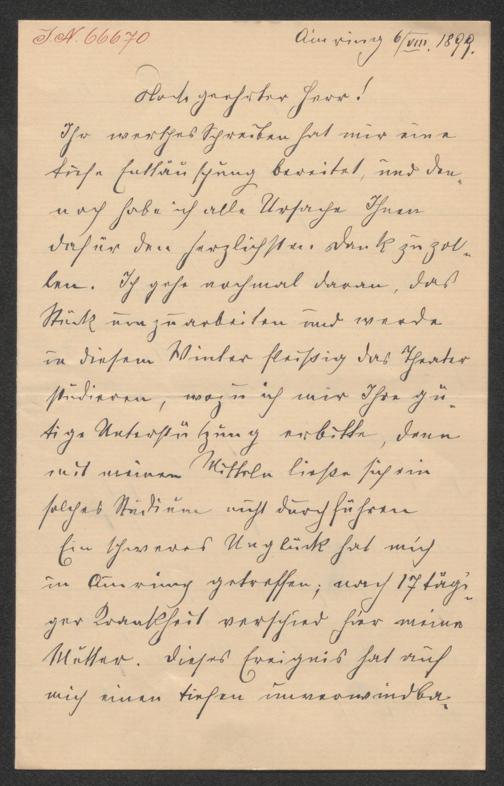 J.N. 66670
Ainring 6/VIII. 1899.
Hochgeehrter Herr!
Ihr werthes Schreiben hat mir eine
tiefe Enttäuschung bereitet, und den-
noch habe ich alle Ursache Ihnen
dafür den herzlichsten Dank zu zol-
len. Ich gehe nochmal daran, das
Stück umzuarbeiten und werde
in diesem Winter fleißig das Theater
studieren, wozu ich mir Ihre gü-
tige Unterstützung erbitte, denn
mit meinen Mitteln ließe sich ein
solches Studium nicht durchführen
Ein schweres Unglück hat mich
in Ainring getroffen; nach 17 tägi-
ger Krankheit verschied hier meine
Mutter. Dieses Ereignis hat auf
mich einen tiefen unverwindba-